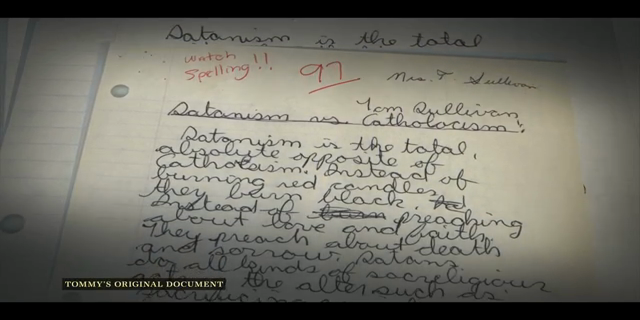 Satanism is the total
watch
Spelling!!
97
Mrs. T. Sullivan
Tom Sullivan
Satanism vs Catholocism
Satanism is the total,
absolute opposite of
Instead of
burning red candles
they burn black.
Instead of preaching
about love and faith
They preach about death
and sorrow. Satans
do all kinds of sacreligious
the alter such as
TOMMY'S ORIGINAL DOCUMENT